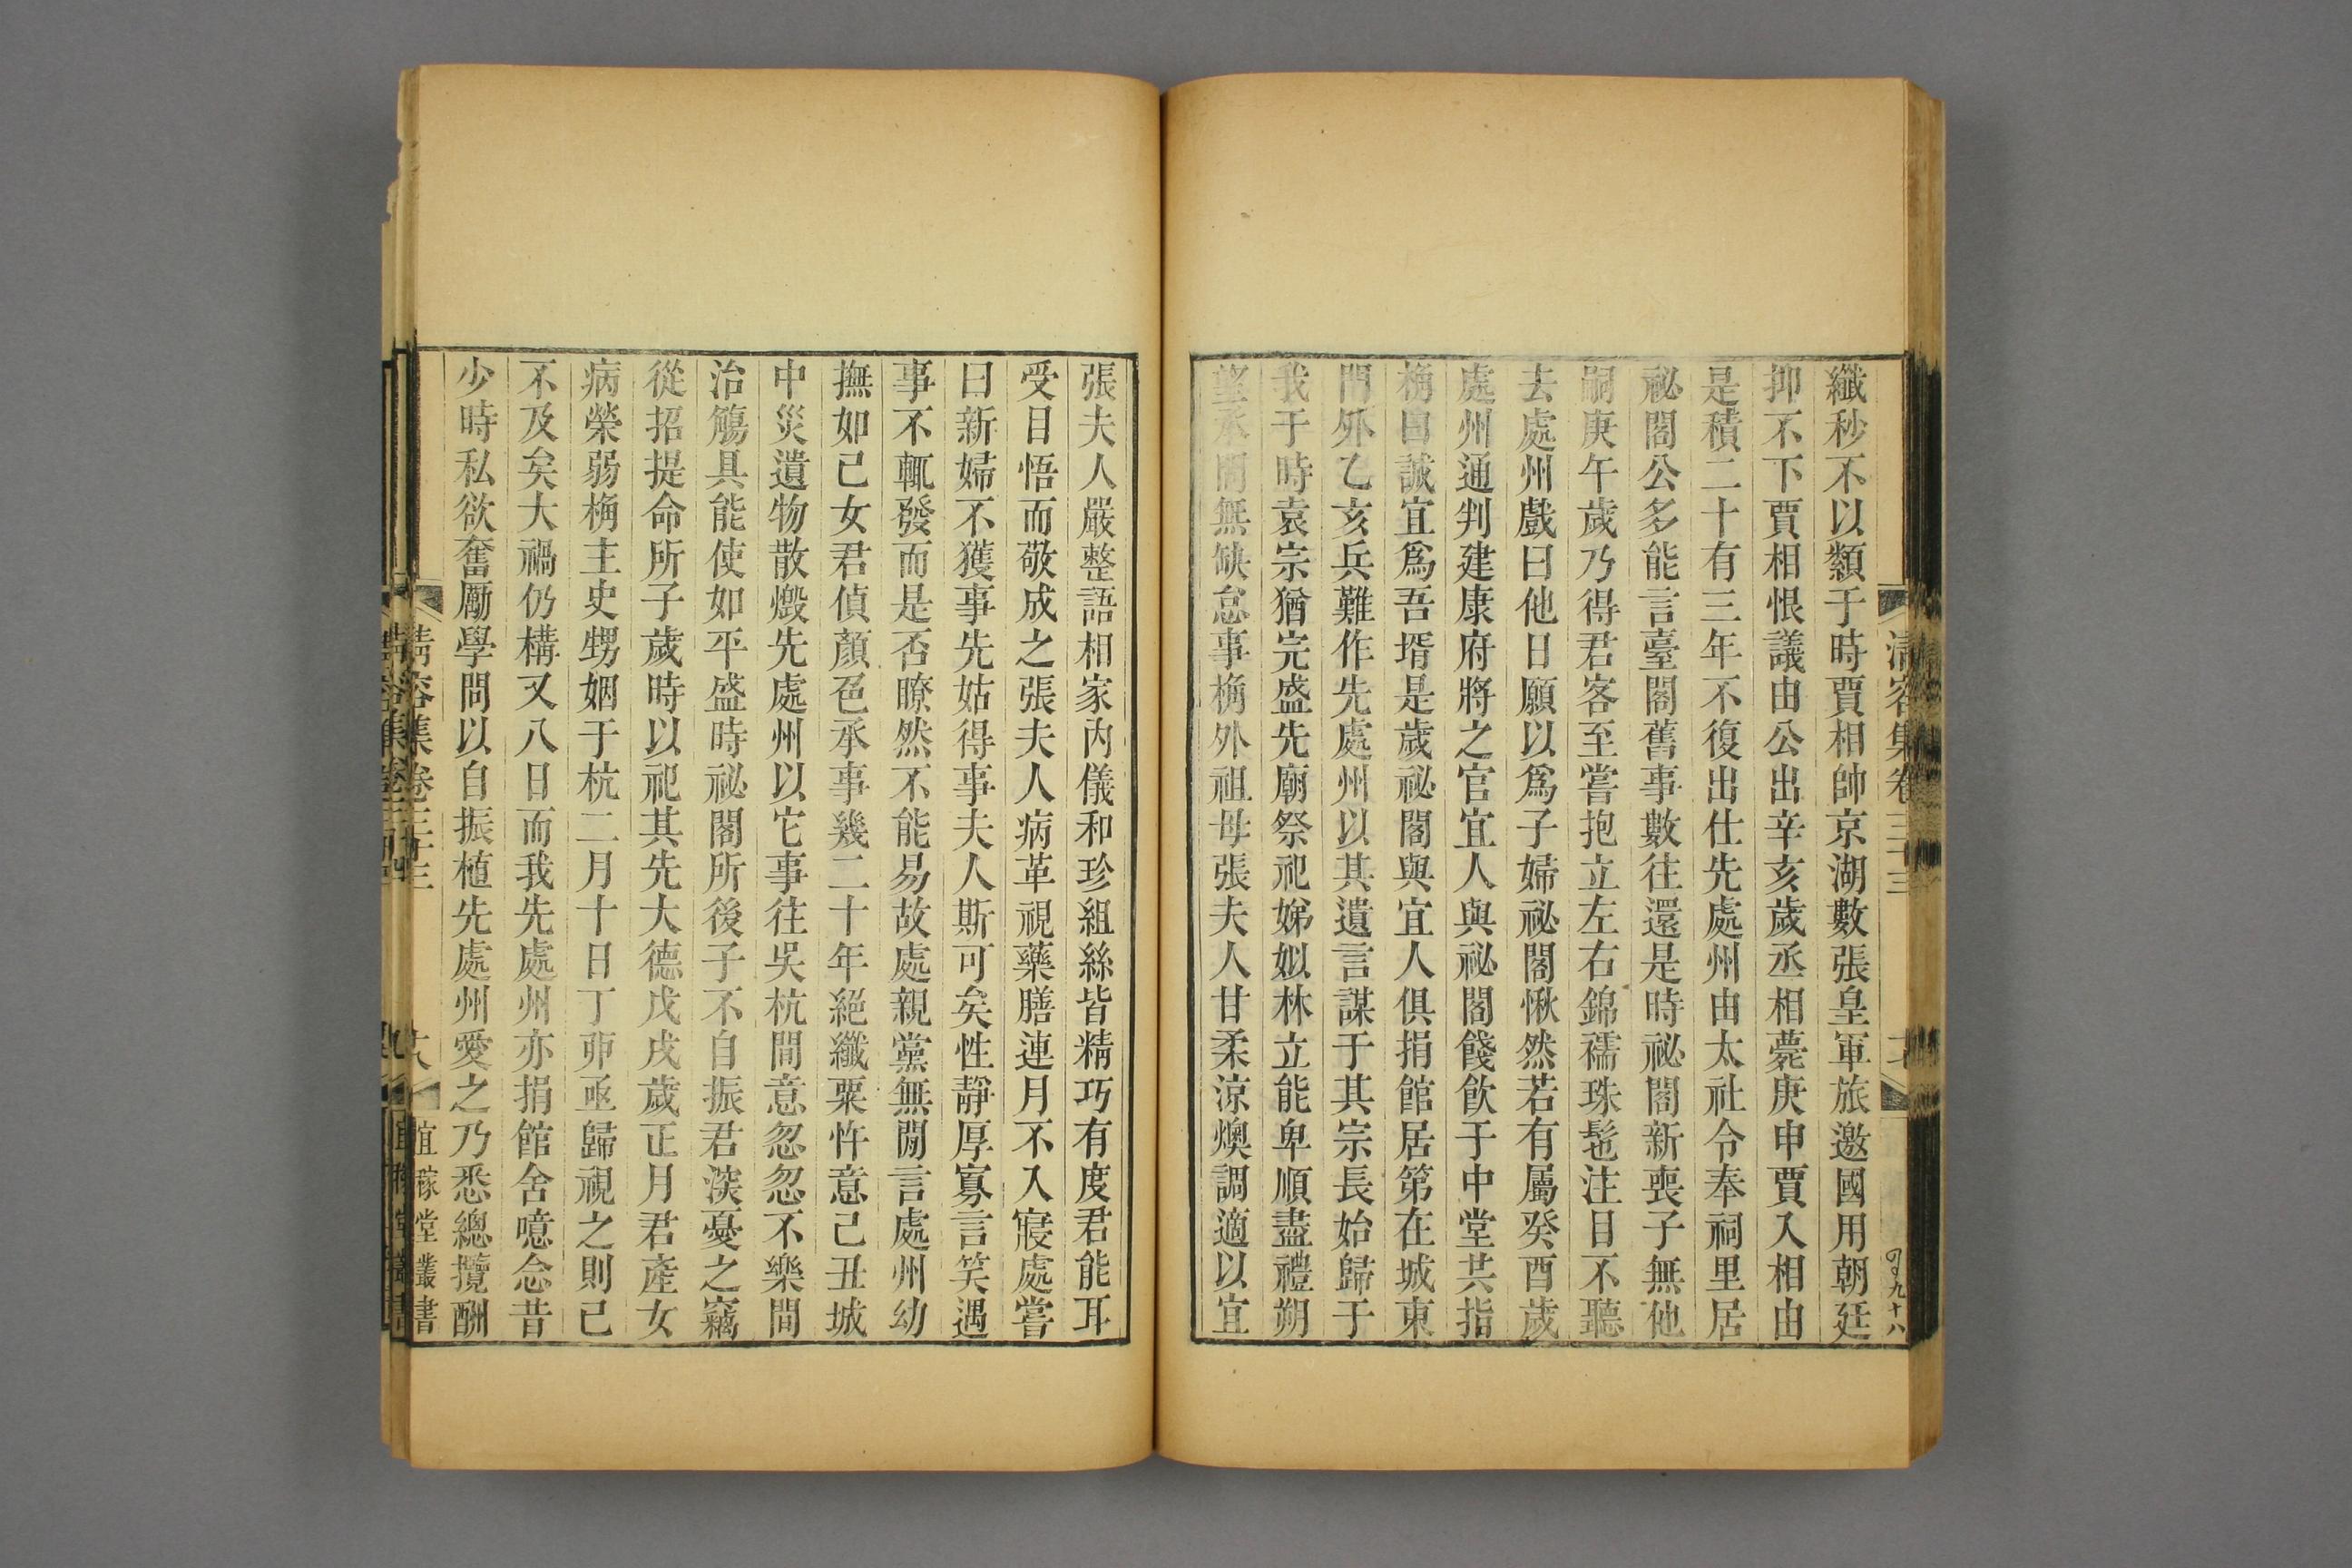 清容集卷三十三
纖秒不以纇于時賈相帥京湖數張皇軍旅邀國用朝廷
抑不下賈相恨議由公出辛亥歲丞相薨庚申賈入相由
是積二十有三年不復出仕先處州由太社令奉祠里居
祕閣公多能言臺閣舊事數往還是時祕閣新喪子無他
嗣庚午歲乃得君客至嘗抱立左右錦襦珠髢注目不聽
去處州戲曰他日願以爲子婦祕閣愀然若有屬癸酉歲
處州通判建康府將之官宜人與祕閣餞飲于中堂共指
桷曰誠宜爲吾壻是歲祕閣與宜人俱捐館居第在城東
門外乙亥兵難作先處州以其遺言謀于其宗長始歸于
我于時袁宗猶完盛先廟祭祀娣姒林立能卑順盡禮朔
望承問無缺怠事桷外祖母張夫人甘柔涼燠調適以宜
張夫人嚴整語相家內儀和珍組絲皆精巧有度君能耳
受目悟而敬成之張夫人病革視藥膳連月不入寢處嘗
曰新婦不獲事先姑得事夫人斯可矣性靜厚寡言笑遇
事不輒發而是否瞭然不能易故處親黨無閒言處州幼
撫如己女君偵顏色承事幾二十年絕纖粟忤意己丑城
中災遺物散燬先處州以它事往吳杭間意忽忽不樂間
治觴具能使如平盛時祕閣所後子不自振君深憂之竊
從招提命所子歲時以祀其先大德戊戌歲正月君產女
病榮弱桷主史甥姻于杭二月十日丁卯亟歸視之則已
不及矣大禍仍構又八日而我先處州亦捐館舍噫念昔
少時私欲奮厲學問以自振植先處州愛之乃悉總攬酬
清容集卷三十三
十八
宜稼堂叢書